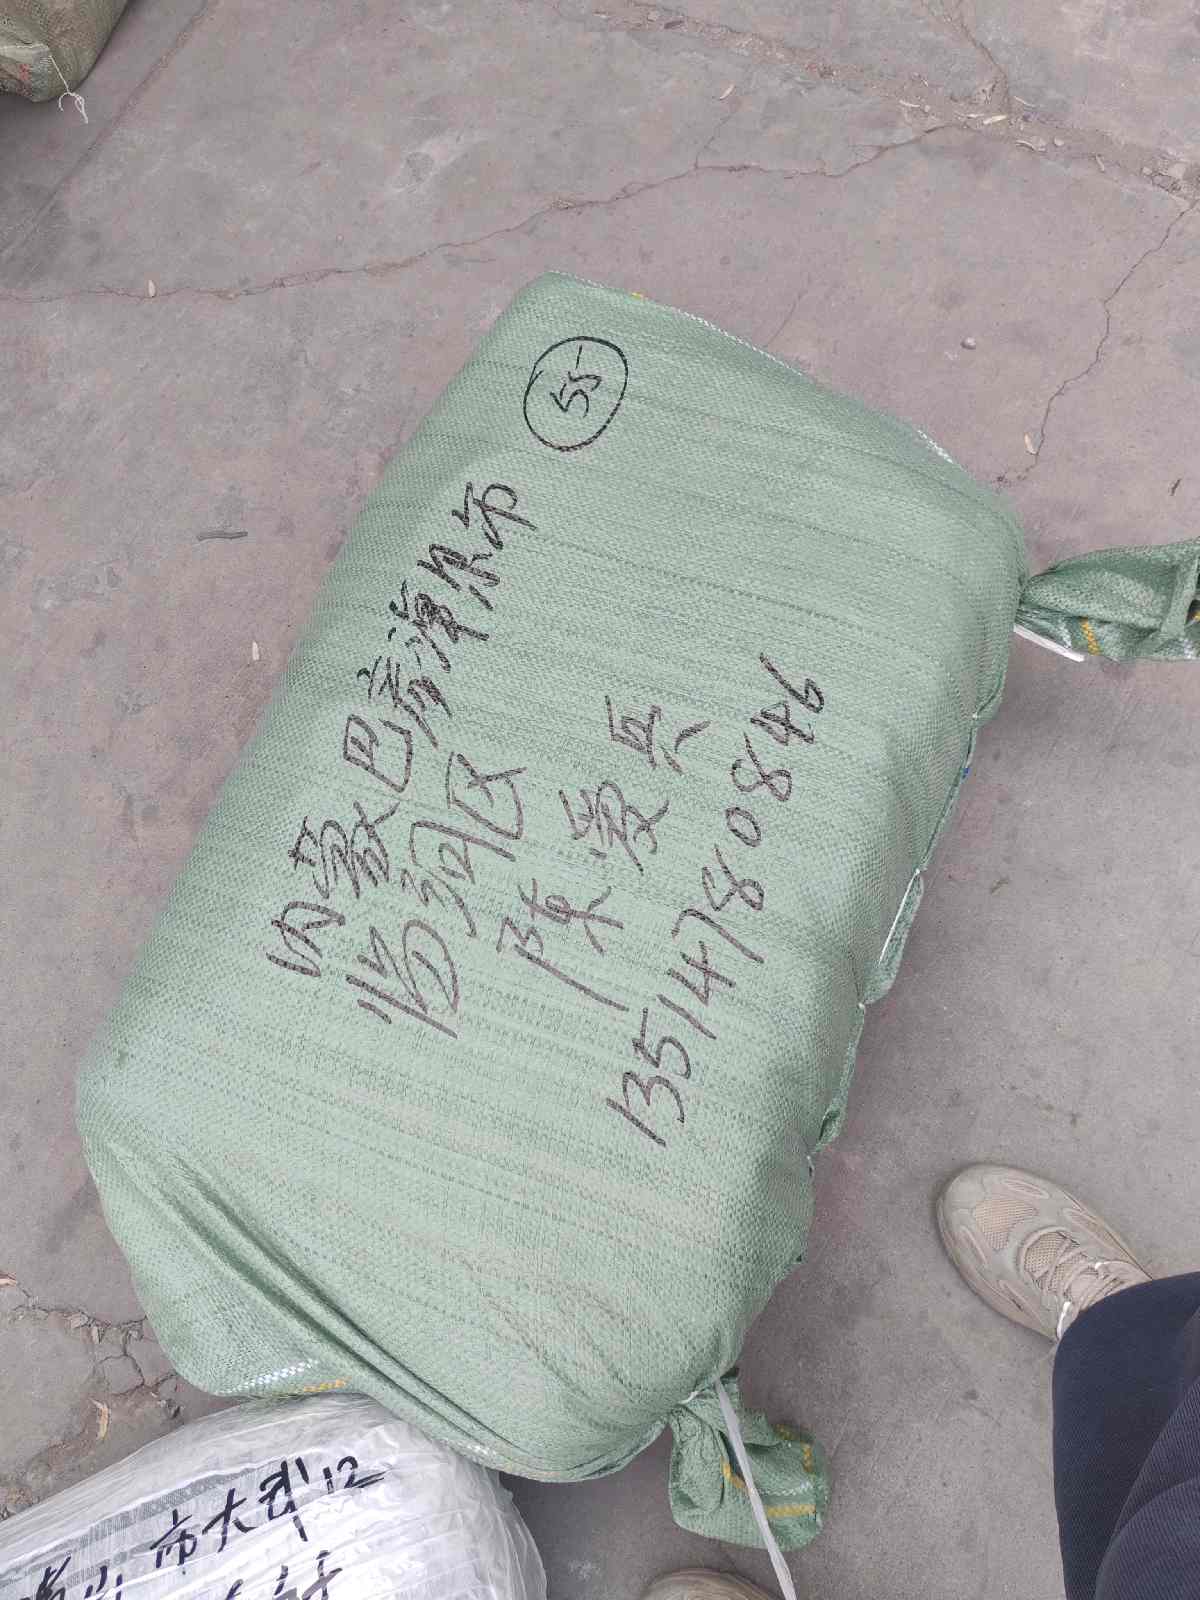 55
内蒙巴彦淖尔市
临河区
陈爱兵
13514780846
市大武12